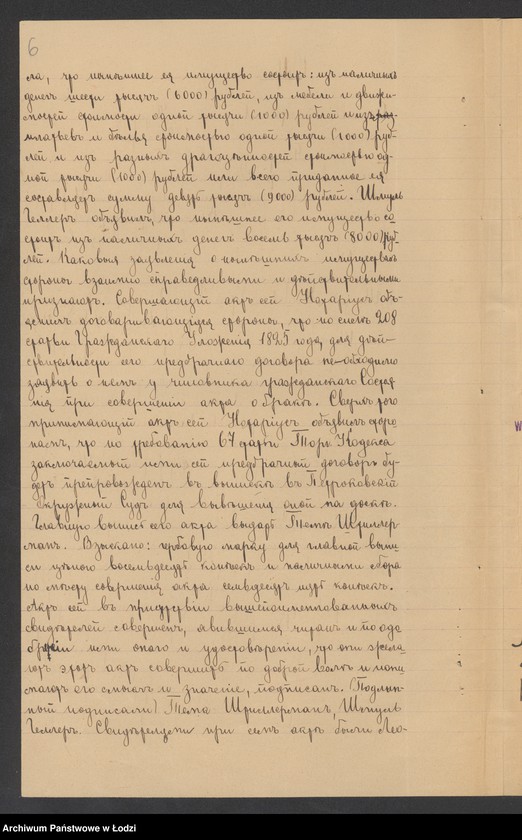 6
ла, что нынѣшнее ея имущество состоитъ: изъ наличныхъ
денегъ шести тысячъ (6000) рублей, изъ мебели и движи-
мостей стоимости одной тысячи (1000) рублей и изъ
платьевъ и бѣлья стоимостью одной тысячи (1000) руб-
лей и изъ разныхъ драгоцѣнностей стоимостью од-
ной тысячи (1000) рублей или всего приданное ея
составляетъ сумму девять тысячъ (9000) рублей. Шмуль
Геллеръ объявилъ, что нынѣшнее его имущество со
стоитъ изъ наличныхъ денегъ восемь тысячъ (8000) руб
лей. Каковыя заявленія о нынѣшнихъ имуществахъ
стороны взаимно справедливыми и дѣйствительными
признаютъ. Совершающій актъ сей Нотаріусъ объ-
яснилъ договаривающимся стороны, что по силѣ 208
статьи Гражданскаго Уложенія 1825 года для дѣй-
ствительности сего предбрачнаго договора необходимо
заявить о немъ у чиновника гражданскаго Состоя
нія при совершеніи акта о бракѣ. Сверхъ того
принимающій актъ сей Нотаріусъ объявилъ сторо
намъ, что по требованію 67 статьи Торг. Кодекса
заключаемый ими сей предбрачный договоръ бу-
детъ препровожденъ въ выписи въ Петроковскій
Окружный Судъ для вывѣшенія оной на доскѣ.
Главную выпись сего акта выдать Темѣ Шриллер-
манъ. Взыскано: гербовую марку для главной выпи
си цѣною восемьдесятъ копѣекъ и наличными сбора
по мѣсту совершенія акта семьдесятъ пять копѣекъ.
Актъ сей въ присутствіи вышепоименованныхъ
свидѣтелей совершенъ, явившимся читанъ и по одо
бреніи ими онаго и удостовѣреніи, что они жела
ютъ этотъ актъ совершить по доброй волѣ и пони
маютъ его смыслъ и значеніе, подписанъ. (Подлин-
ный подписали) Тема Шриллерманъ, Шмуль
Геллеръ. Свидѣтелями при семъ актѣ были Лео-
Archiwum Państwowe w Łodzi